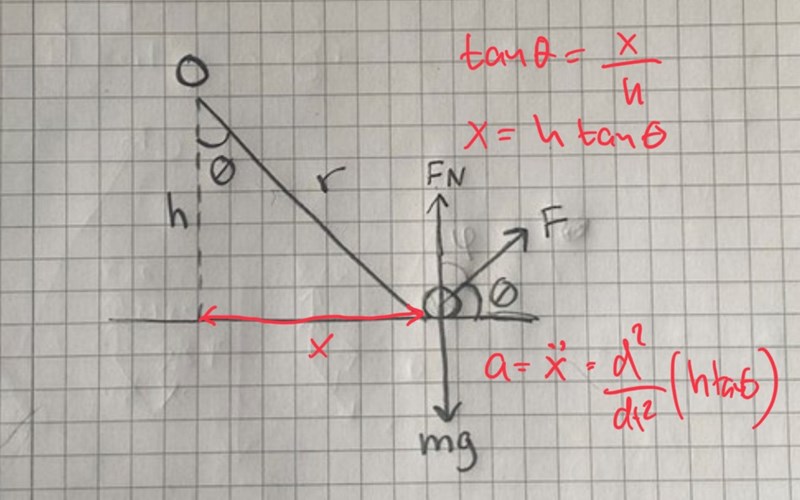 O
θ
h
r
x
FN
φ
F
θ
mg
tanθ = x/h
x = h tanθ
a = ẍ = d²/dt² (h tanθ)